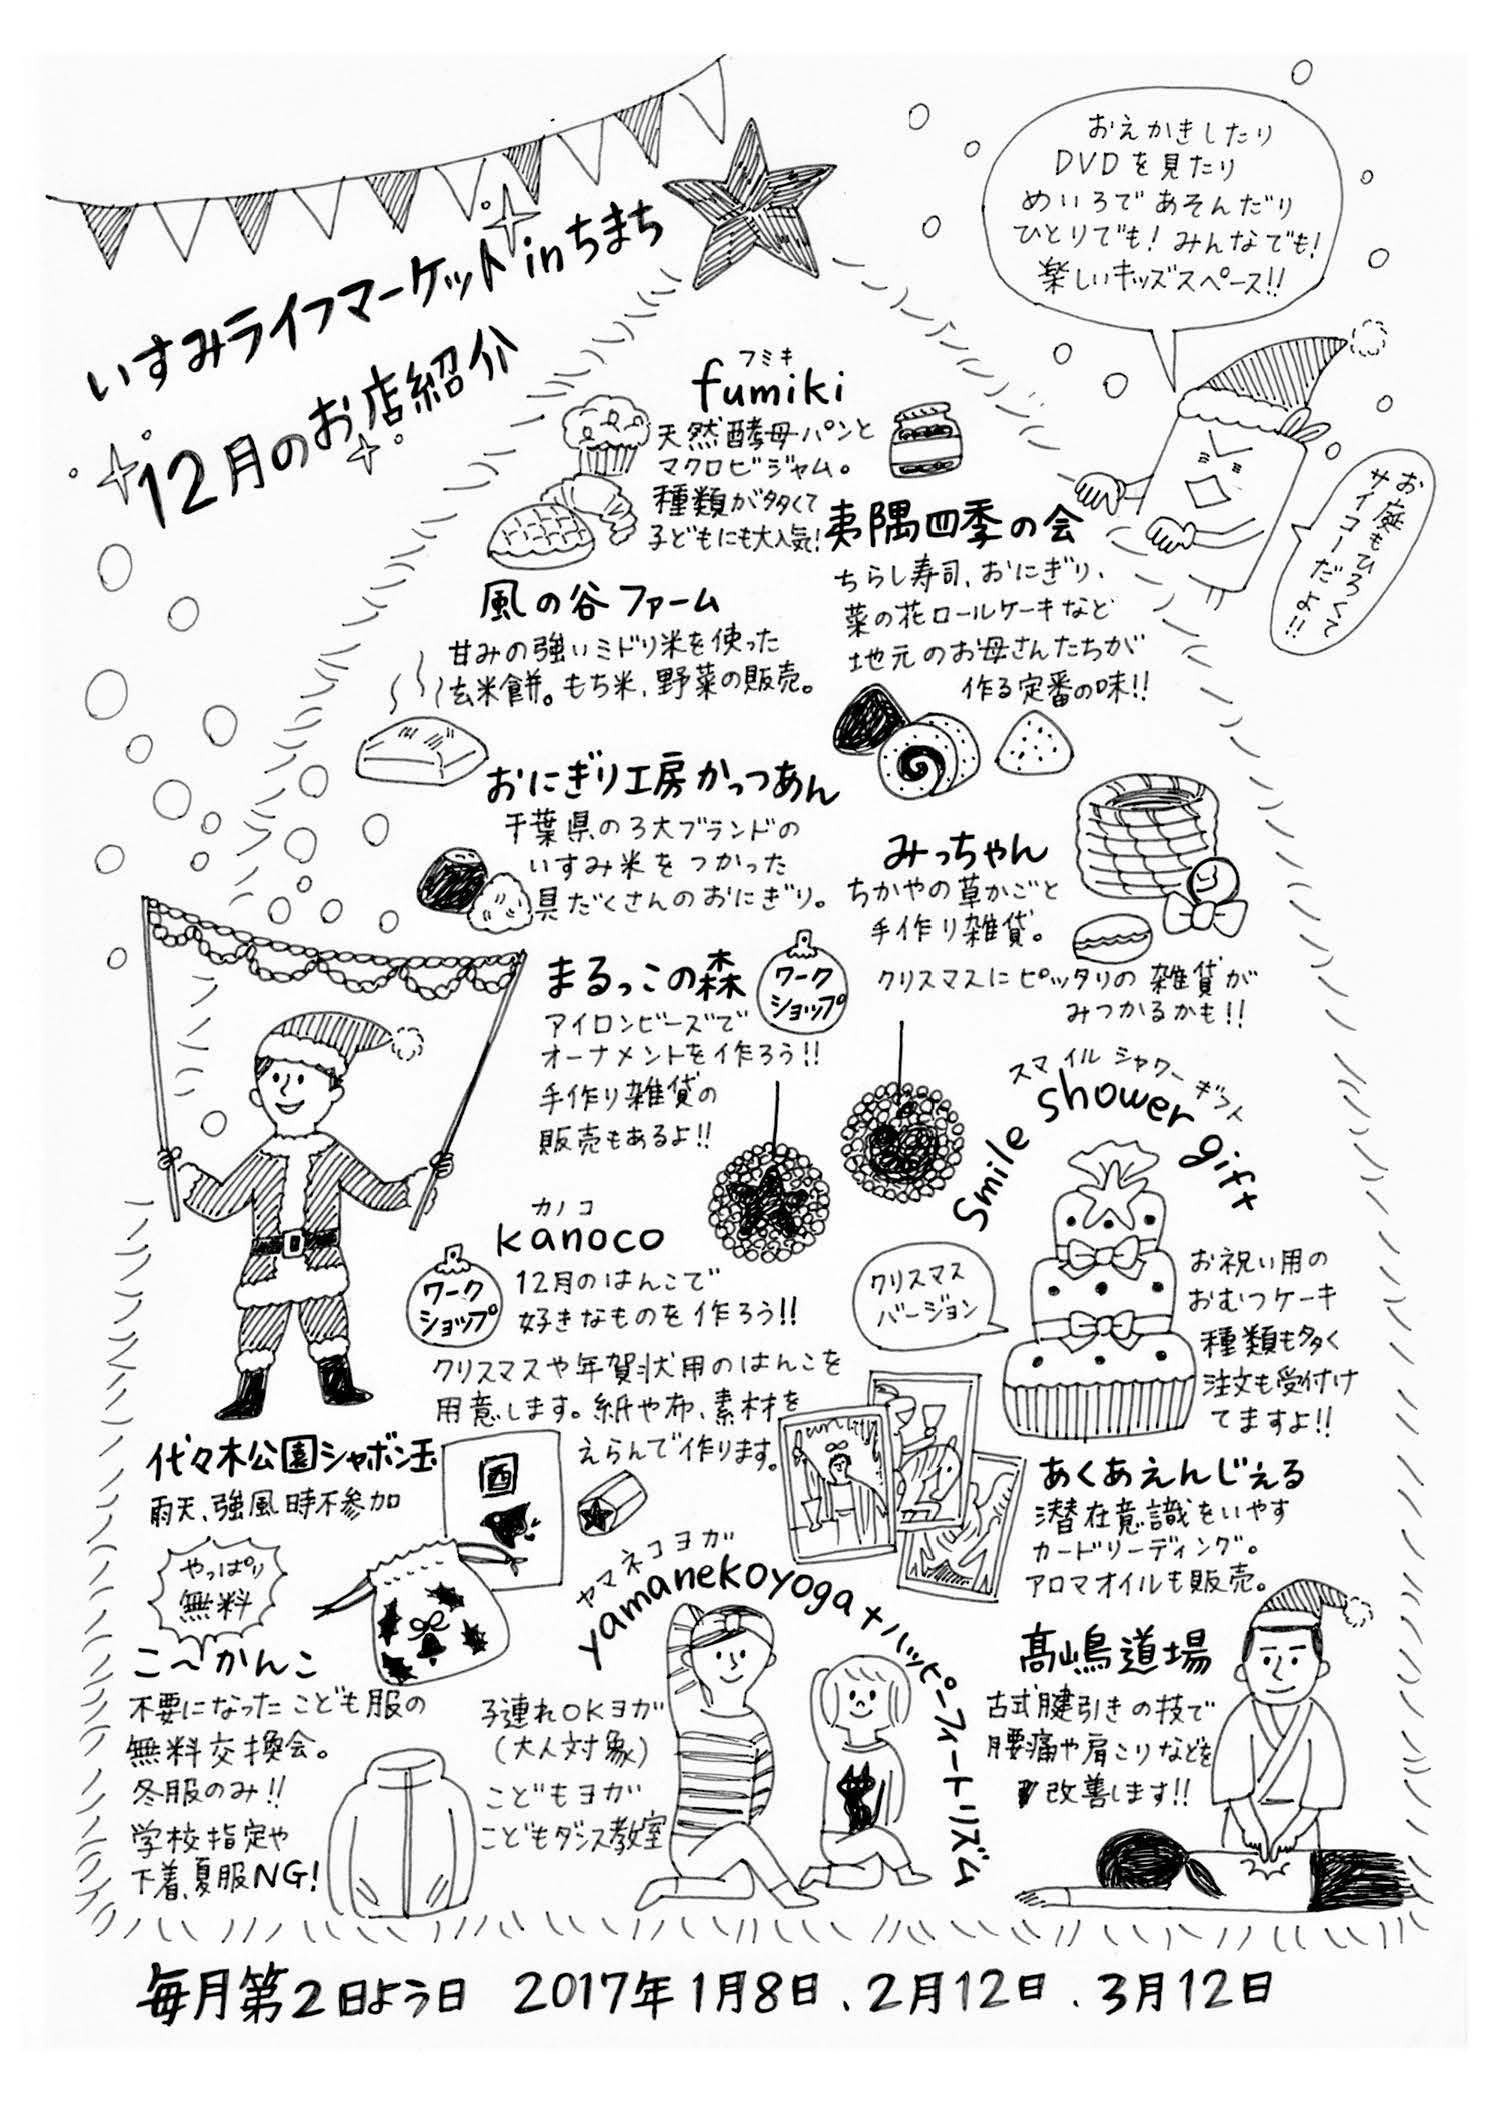 いすみライフマーケットinちまち
12月のお店紹介
おえかきしたり
DVDを見たり
めいろであそんだり
ひとりでも!みんなでも!
楽しいキッズスペース!!
お庭もひろくて
サイコーだよ!!
フミキ
fumiki
天然酵母パンと
マクロビジャム。
種類が多くて
子どもにも大人気!
夷隅四季の会
ちらし寿司、おにぎり、
菜の花ロールケーキなど
地元のお母さんたちが
作る定番の味!!
風の谷ファーム
甘みの強いミドリ米を使った
玄米餅。もち米、野菜の販売。
おにぎり工房かっつあん
千葉県の3大ブランドの
いすみ米をつかった
具だくさんのおにぎり。
みっちゃん
ちがやの草かごと
手作り雑貨。
クリスマスにピッタリの雑貨が
みつかるかも!!
まるっこの森
ワーク
ショップ
アイロンビーズで
オーナメントを作ろう!!
手作り雑貨の
販売もあるよ!!
スマイルシャワーギフト
Smile shower gift
クリスマス
バージョン
お祝い用の
おむつケーキ
種類も多く
注文も受付け
てますよ!!
カノコ
kanoco
ワーク
ショップ
12月のはんこで
好きなものを作ろう!!
クリスマスや年賀状用のはんこを
用意します。紙や布、素材を
えらんで作ります。
酉
代々木公園シャボン玉
雨天、強風時不参加
あくあえんじぇる
潜在意識をいやす
カードリーディング。
アロマオイルも販売。
やっぱり
無料
こ〜かんこ
不要になったこども服の
無料交換会。
冬服のみ!!
学校指定や
下着、夏服NG!
ヤマネコヨガ
yamanekoyoga+ハッピーフィートリズム
子連れOKヨガ
(大人対象)
こどもヨガ
こどもダンス教室
髙嶋道場
古式腱引きの技で
腰痛や肩こりなどを
改善します!!
毎月第2日よう日 2017年1月8日、2月12日、3月12日